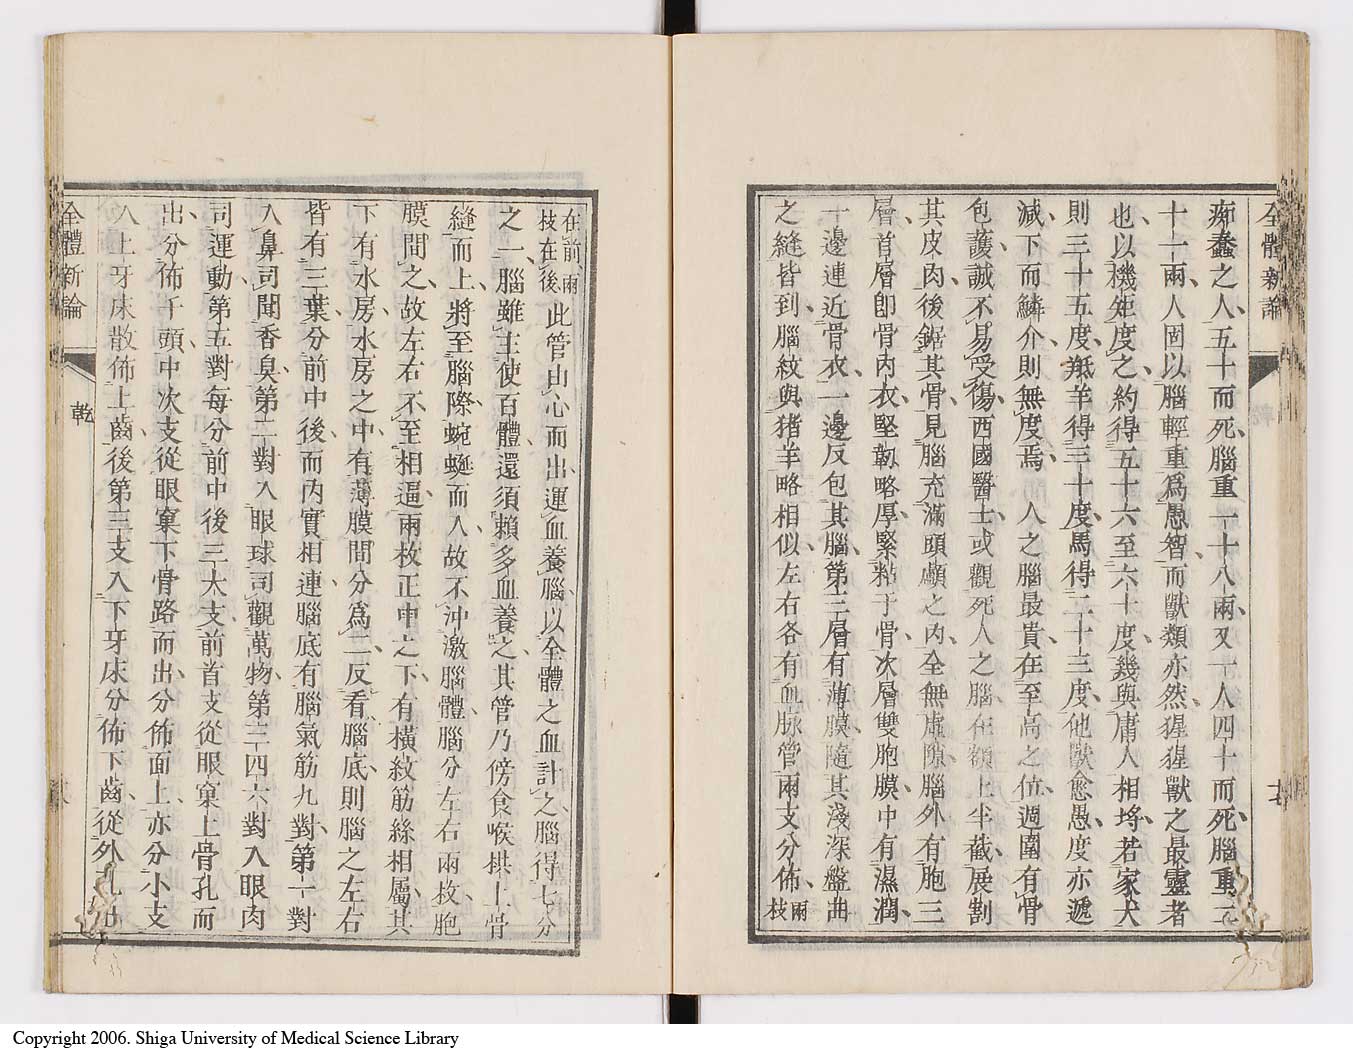 全體新論
痴蠢之人五十而死腦重一十八兩又一人四十而死腦重二
十一兩人固以腦輕重爲愚智而獸類亦然猩猩獸之最靈者
也以機矩度之約得五十六至六十度幾與庸人相埒若家犬
則三十五度羝羊得三十度馬得二十三度他獸愈愚度亦遞
減下而鱗介則無度焉人之腦最貴在至高之位週圍有骨
包護誠不易受傷西國醫士或觀死人之腦在額上半截展割
其皮肉後鋸其骨見腦充滿頭顱之內全無虛隙腦外有胞三
層首層卽骨內衣堅韌略厚緊粘于骨次層雙胞膜中有濕潤
一邊連近骨衣一邊反包其腦第三層有薄膜隨其淺深盤曲
之縫皆到腦紋與猪羊略相似左右各有血脉管兩支分佈兩枝
在前兩枝在後此管由心而出運血養腦以全體之血計之腦得七分
之一腦雖主使百體還須賴多血養之其管乃傍食喉拱上骨
縫而上將至腦際蜿蜒而入故不沖激腦體腦分左右兩枚胞
膜間之故左右不至相逼兩枚正中之下有橫紋筋絲相屬其
下有水房水房之中有薄膜間分爲二反看腦底則腦之左右
皆有三葉分前中後而內實相連腦底有腦氣筋九對第一對
入鼻司聞香臭第二對入眼球司觀萬物第三四六對入眼肉
司運動第五對每分前中後三大支前首支從眼窠上骨孔而
出分佈千頭中次支從眼窠下骨路而出分佈面上亦分小支
入上牙床散佈上齒後第三支入下牙床分佈下齒從外孔
全體新論
乾
Copyright 2006. Shiga University of Medical Science Library